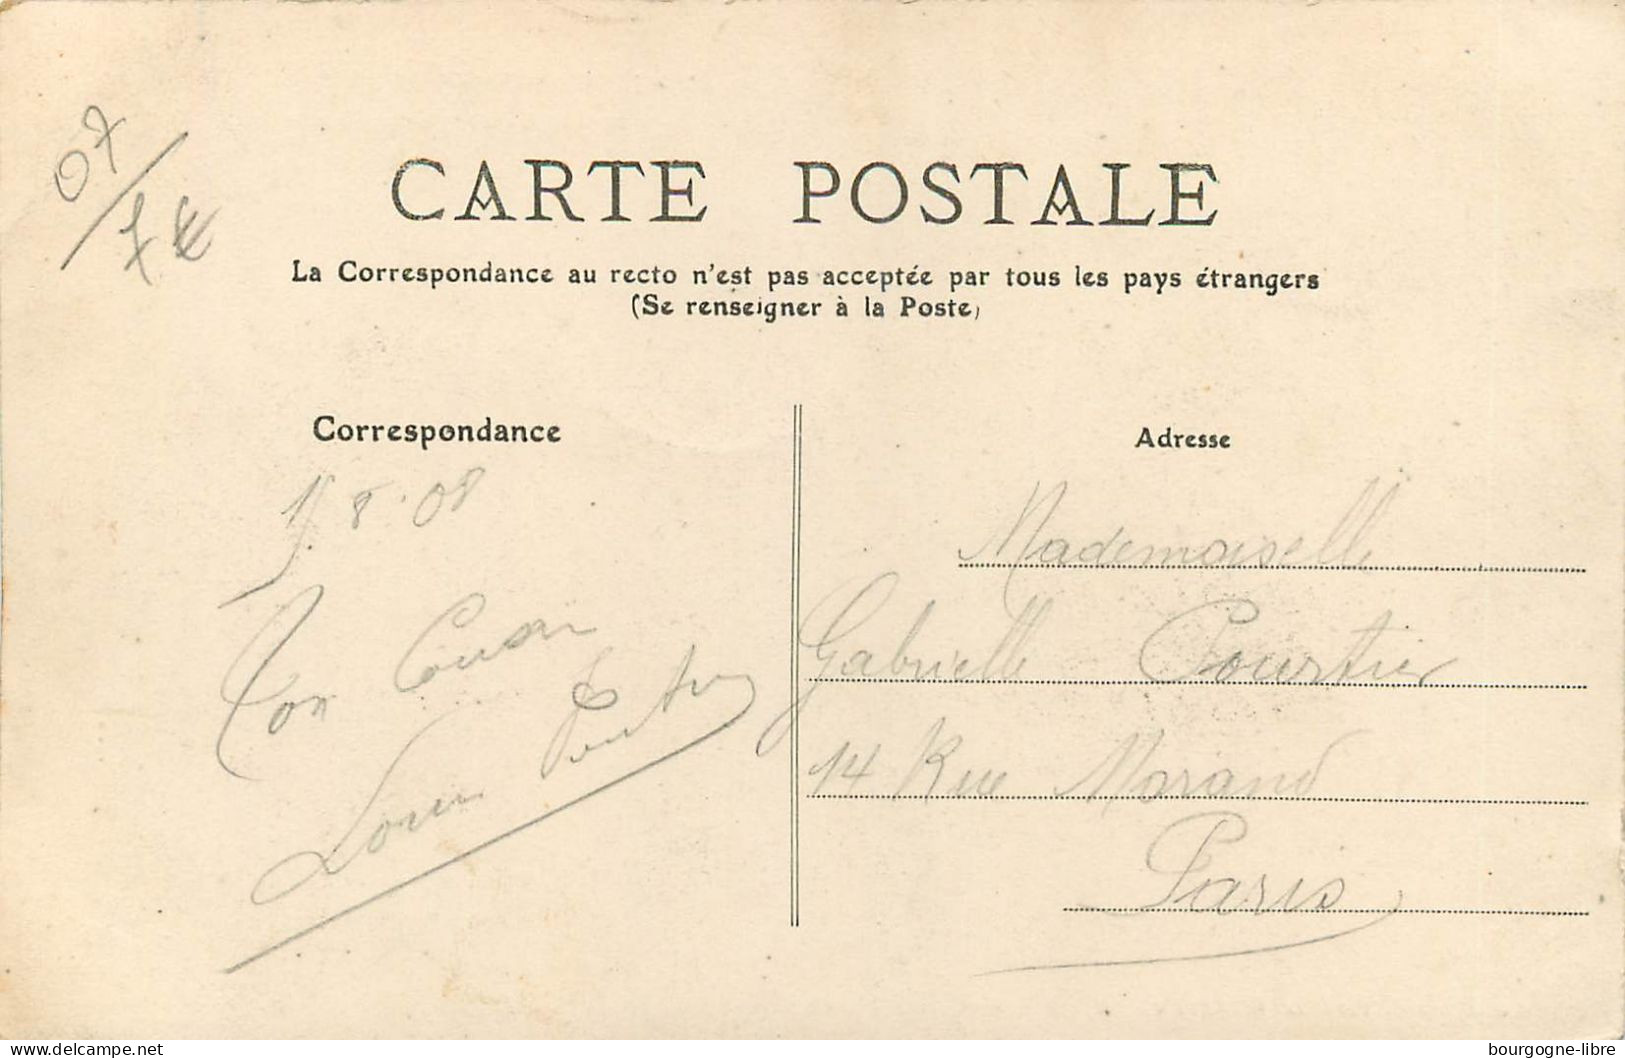 07
7 €
CARTE POSTALE
La Correspondance au recto n'est pas acceptée par tous les pays étrangers
(Se renseigner à la Poste)
Correspondance
8.08
Ton Cousin
Louis
Adresse
Mademoiselle
Gabrielle Pourtier
14 Rue Morand
Paris
bourgogne-libre